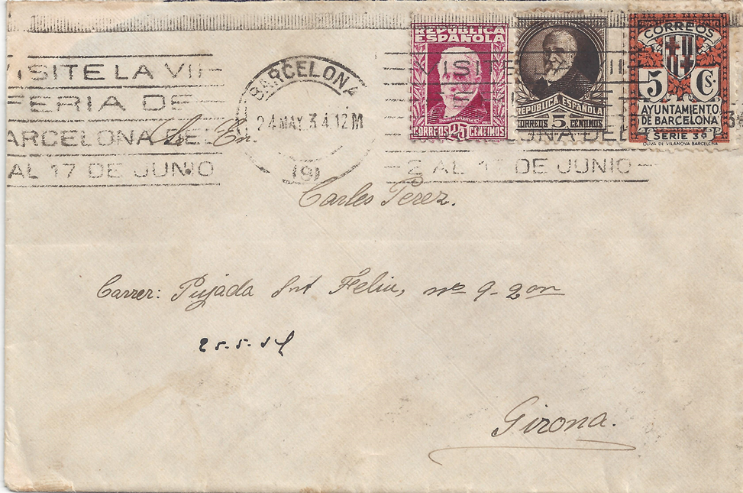 VISITE LA VII
FERIA DE
BARCELONA DEL
2 AL 17 DE JUNIO
BARCELONA
24 MAY. 34. 12 M
(9)
REPUBLICA
ESPAÑOLA
CORREOS 25 CENTIMOS
REPUBLICA ESPAÑOLA
CORREOS 5 CENTIMOS
CORREOS
5 Cs.
AYUNTAMIENTO
DE BARCELONA
SERIE 3ª
OLIVA DE VILANOVA BARCELONA
2 AL 17 DE JUNIO
En
Carles Perez.
Carrer: Pujada Snt Feliu, nº 9-2on
25-5-34
Girona.